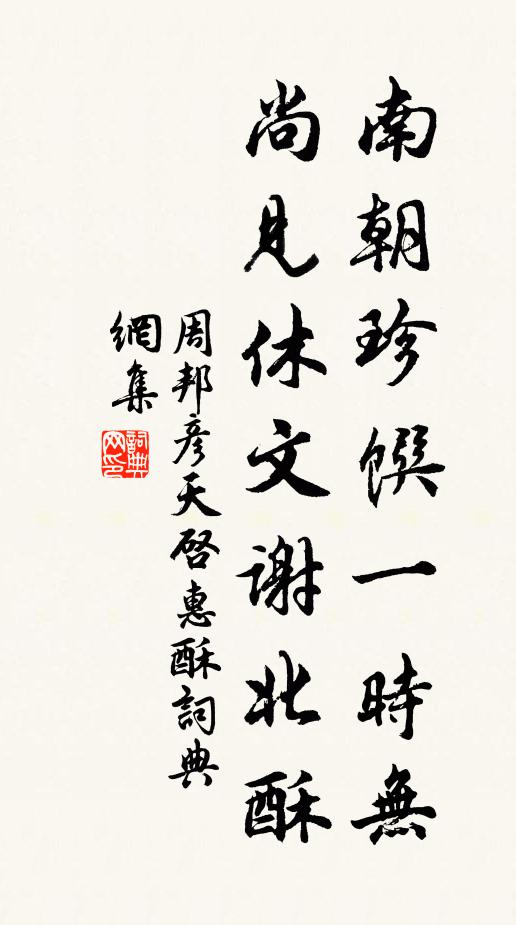 南朝珍饌一時無
尚見休文謝北酥
周邦彥天啓惠酥詞典
網集
詞典网印